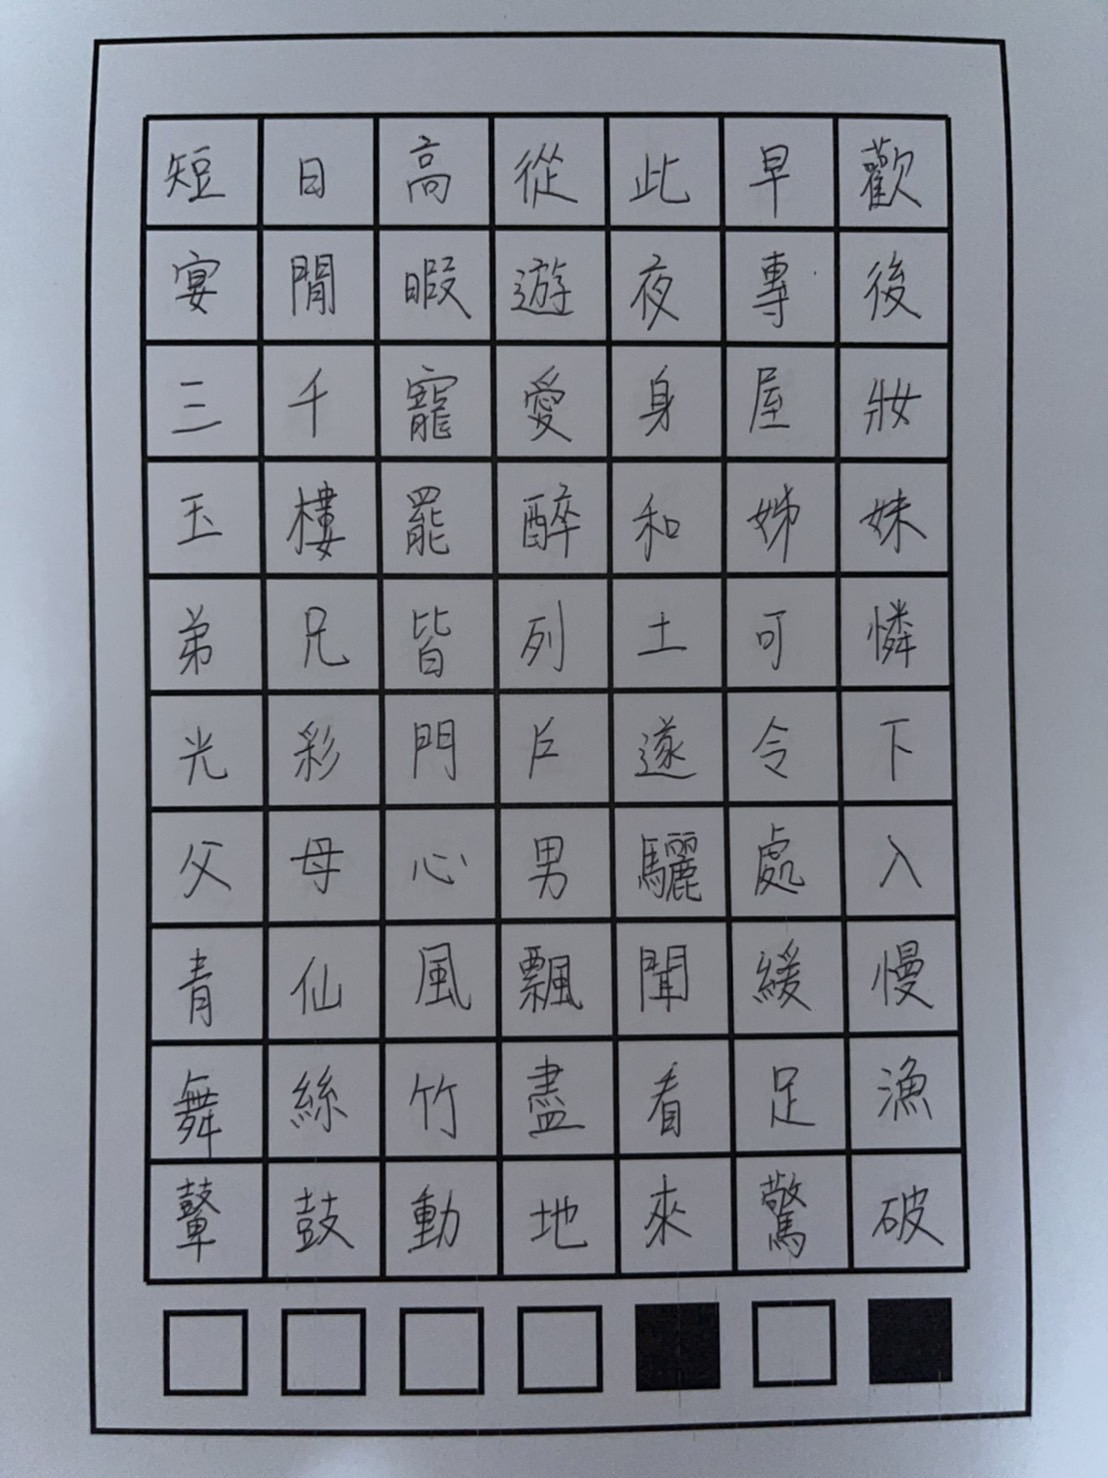 短日高從此早歡
宴閒暇遊夜專後
三千寵愛身屋妝
玉樓罷醉和姊妹
弟兄皆列土可憐
光彩門戶遂令下
父母心男驪處入
青仙風飄聞緩慢
舞絲竹盡看足漁
鼙鼓動地來驚破